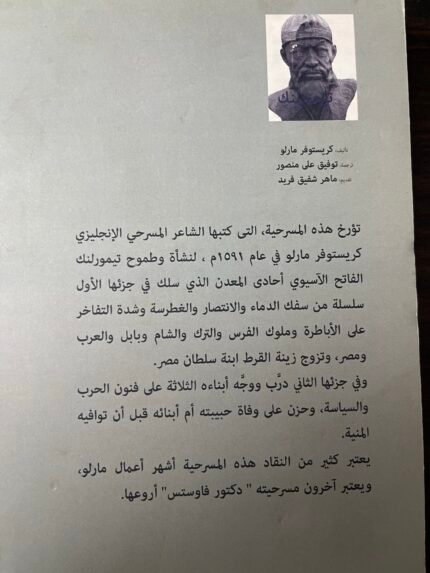 تيمورلنك
تأليف: كريستوفر مارلو
ترجمة: توفيق على منصور
تقديم: ماهر شفيق فريد
تؤرخ هذه المسرحية، التى كتبها الشاعر المسرحي الإنجليزي
كريستوفر مارلو في عام ١٥٩١م ، لنشأة وطموح تيمورلنك
الفاتح الآسيوي أحادى المعدن الذي سلك في جزئها الأول
سلسلة من سفك الدماء والانتصار والغطرسة وشدة التفاخر
على الأباطرة وملوك الفرس والترك والشام وبابل والعرب
ومصر، وتزوج زينة القرط ابنة سلطان مصر.
وفي جزئها الثاني درَّب ووجَّه أبناءه الثلاثة على فنون الحرب
والسياسة، وحزن على وفاة حبيبته أم أبنائه قبل أن توافيه
المنية.
يعتبر كثير من النقاد هذه المسرحية أشهر أعمال مارلو،
ويعتبر آخرون مسرحيته " دكتور فاوستس" أروعها.